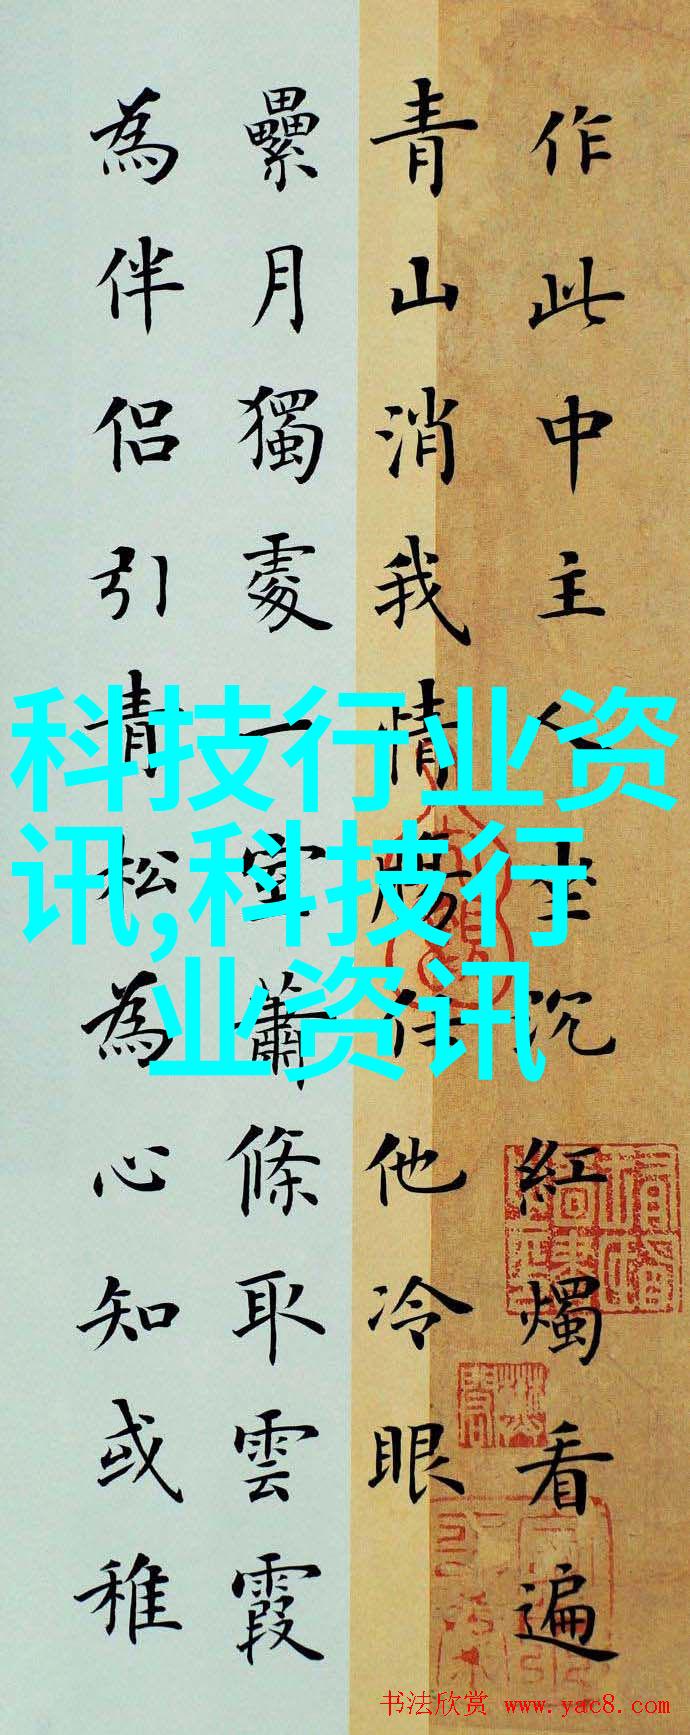 作此中主人坐沉紅燭看遍
青山消我情腸任他冷眼
纍月獨處一室蕭條取雲霞
為伴侶引青松為心知或稚
科技行业资
讯,科技行
业资讯
书法欣赏 www.yac8.com